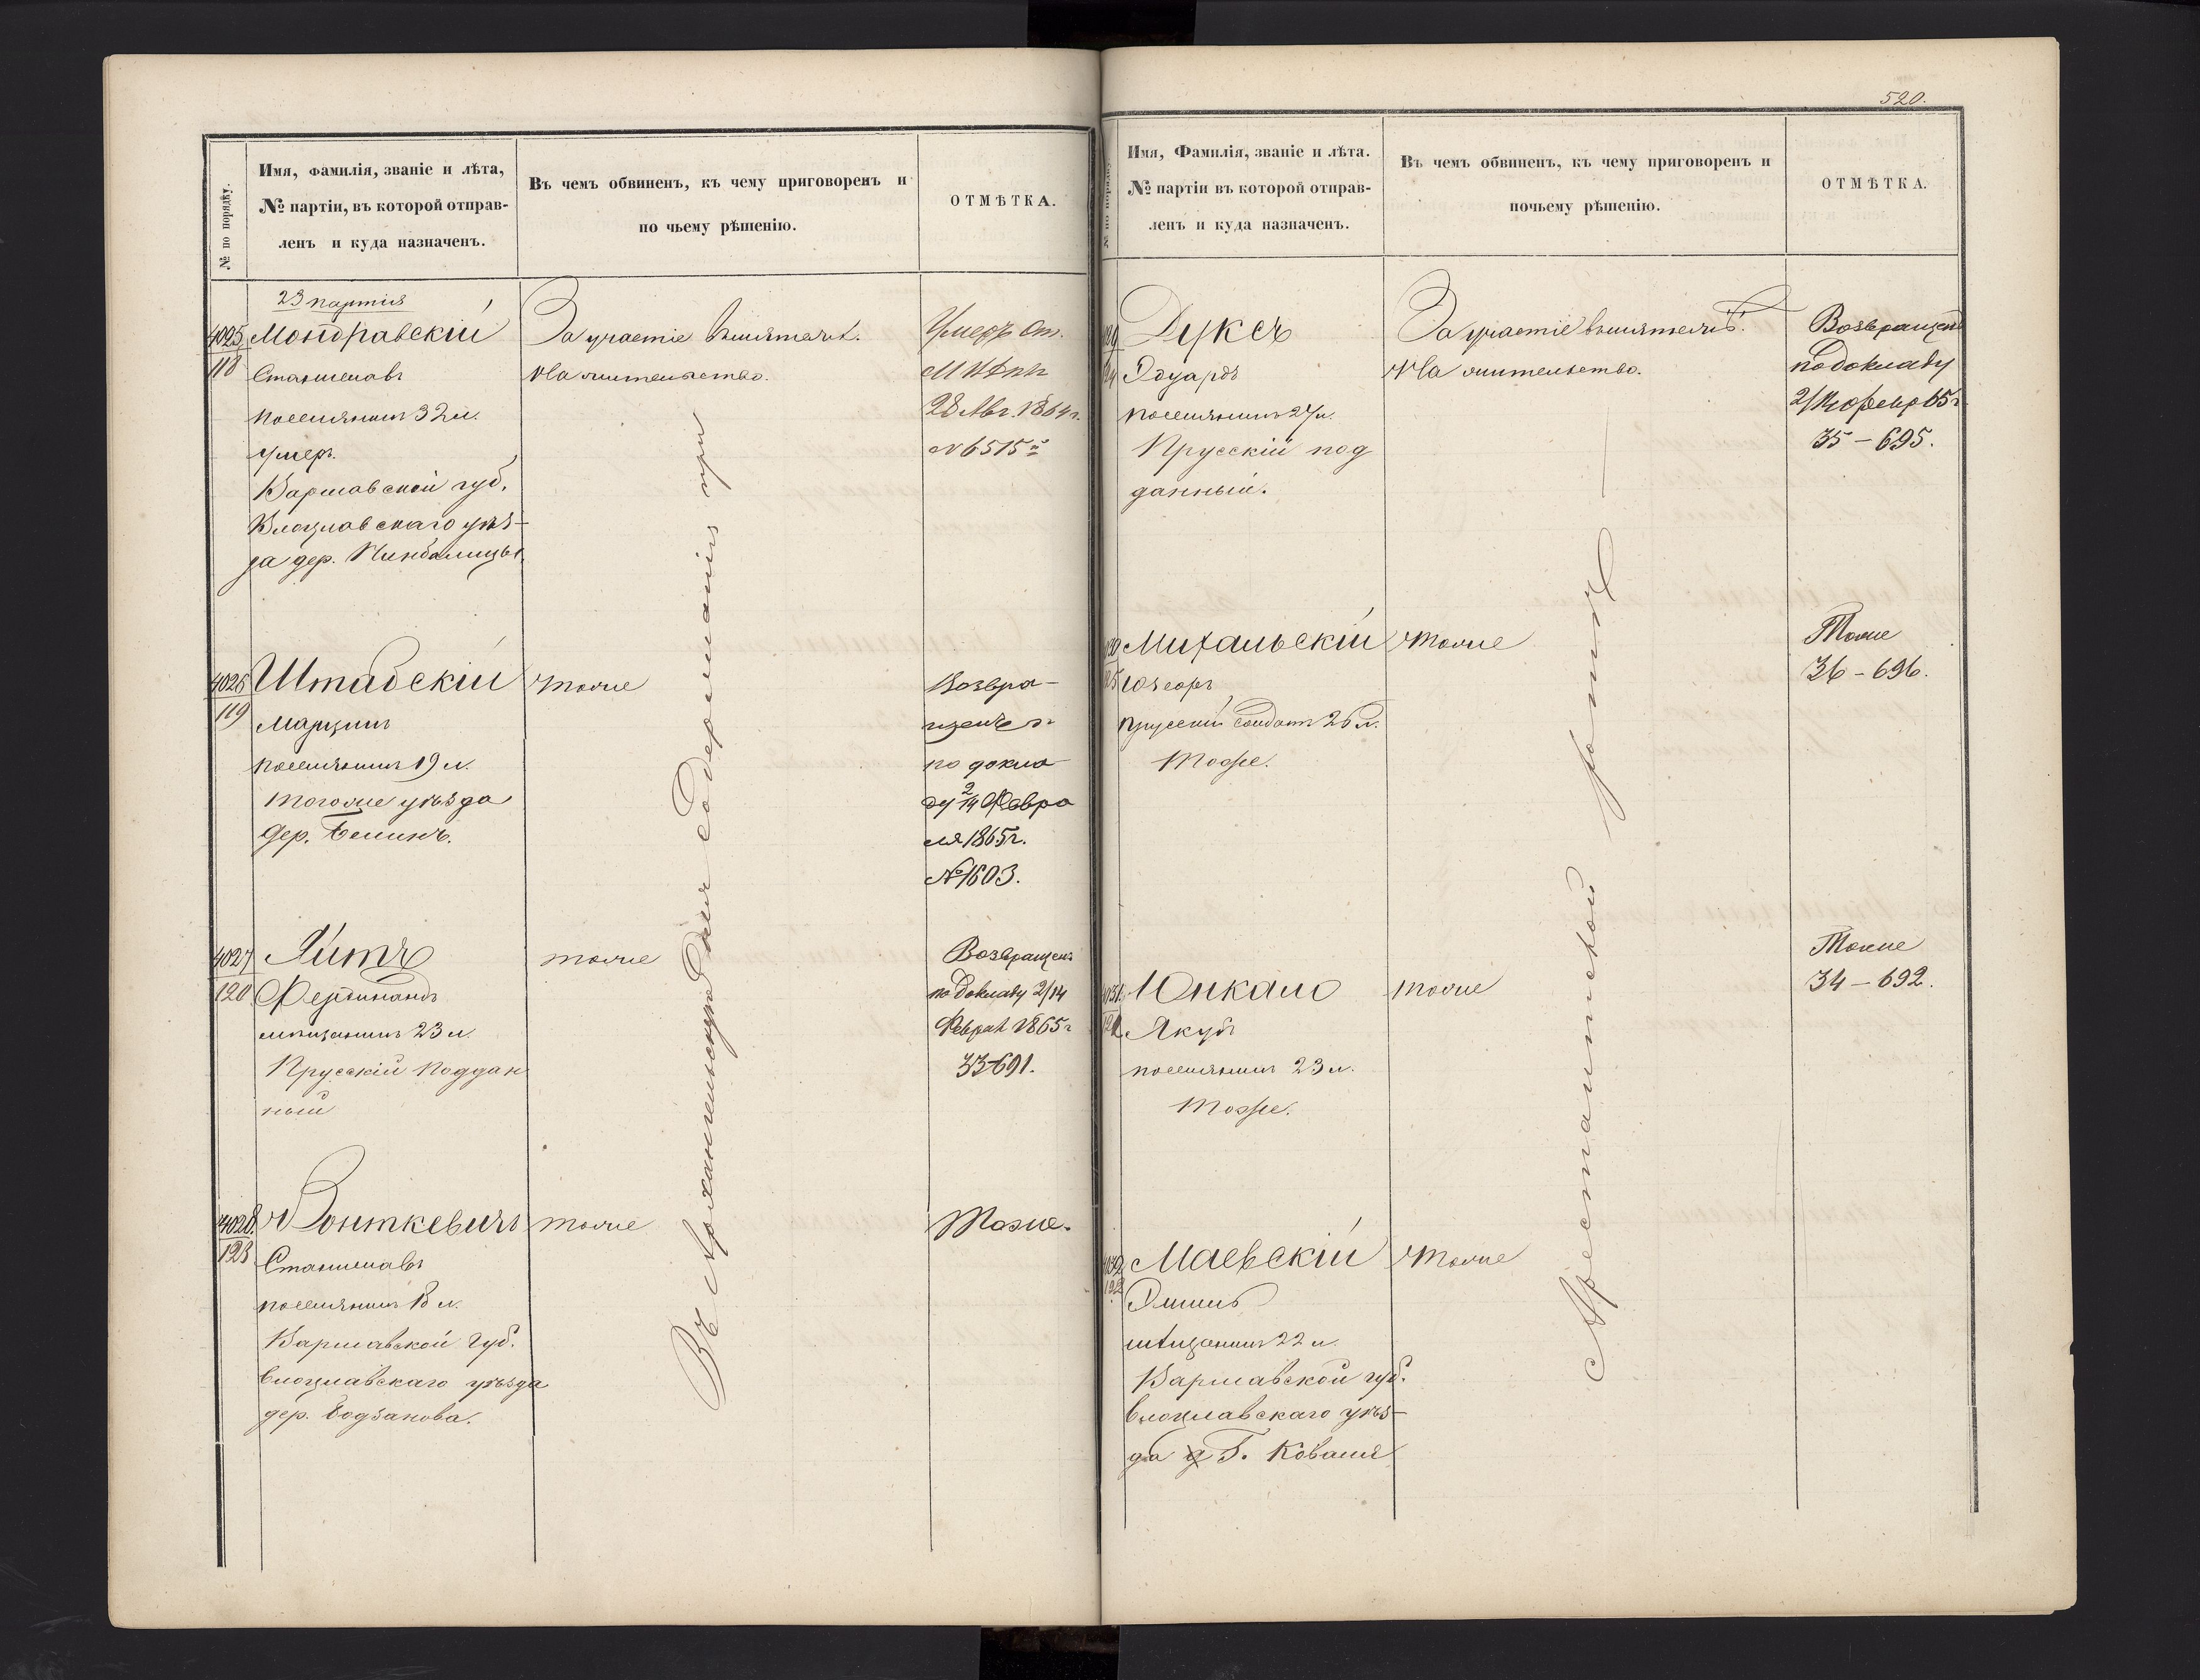 № по порядку.
Имя, фамилія, званіе и лѣта,
№ партіи, въ которой отправ-
ленъ и куда назначенъ.
Въ чемъ обвиненъ, къ чему приговоренъ и
по чьему рѣшенію.
ОТМѢТКА.
23 партія
4025
118
Мондравскій
Станиславъ
поселянинъ 32 л.
умеръ.
Варшавской губ.
Влоцлавскаго уѣз-
да дер.
За участіе въ мятежѣ.
На жительство.
28 Авг. 1864 г.
№ 6515
4026
119
Штабскій
Марцинъ
поселянинъ 19 л.
тогоже уѣзда
дер.
тоже
Возвра-
щенъ
по докла-
ду 2/14 Февра
ля 1865 г.
№ 1603.
4027
120
Фердинандъ
мѣщанинъ 23 л.
Прусскій поддан
ный
тоже
Возвращенъ
по докладу 2/14
Февраля 1865 г
33-691.
4028
123
Вонткевичъ
Станиславъ
поселянинъ 18 л.
Варшавской губ.
Влоцлавскаго уѣзда
дер. Бодзанова.
тоже
Тоже.
Въ Архангельскую для содержанія при
520.
Имя, Фамилія, званіе и лѣта.
№ партіи въ которой отправ-
ленъ и куда назначенъ.
Въ чемъ обвиненъ, къ чему приговоренъ и
почьему рѣшенію.
ОТМѢТКА.
Дуксъ
Эдуардъ
поселянинъ 27 л.
Прусскій под
данный.
За участіе въ мятежѣ.
На жительство.
Возвращенъ
по докладу
2/14 Февр 65 г.
35 - 695.
Михальскій
Юзефъ
прусскій солдатъ 26 л.
Тоже.
тоже
Тоже
36 - 696.
Юнкало
Якубъ
поселянинъ 23 л.
Тоже.
тоже
Тоже
34 - 692.
122
Маевскій
Эмиль
мѣщанинъ 22 л.
Варшавской губ.
Влоцлавскаго уѣз-
да г. Коваля
тоже
Арестантской ротѣ